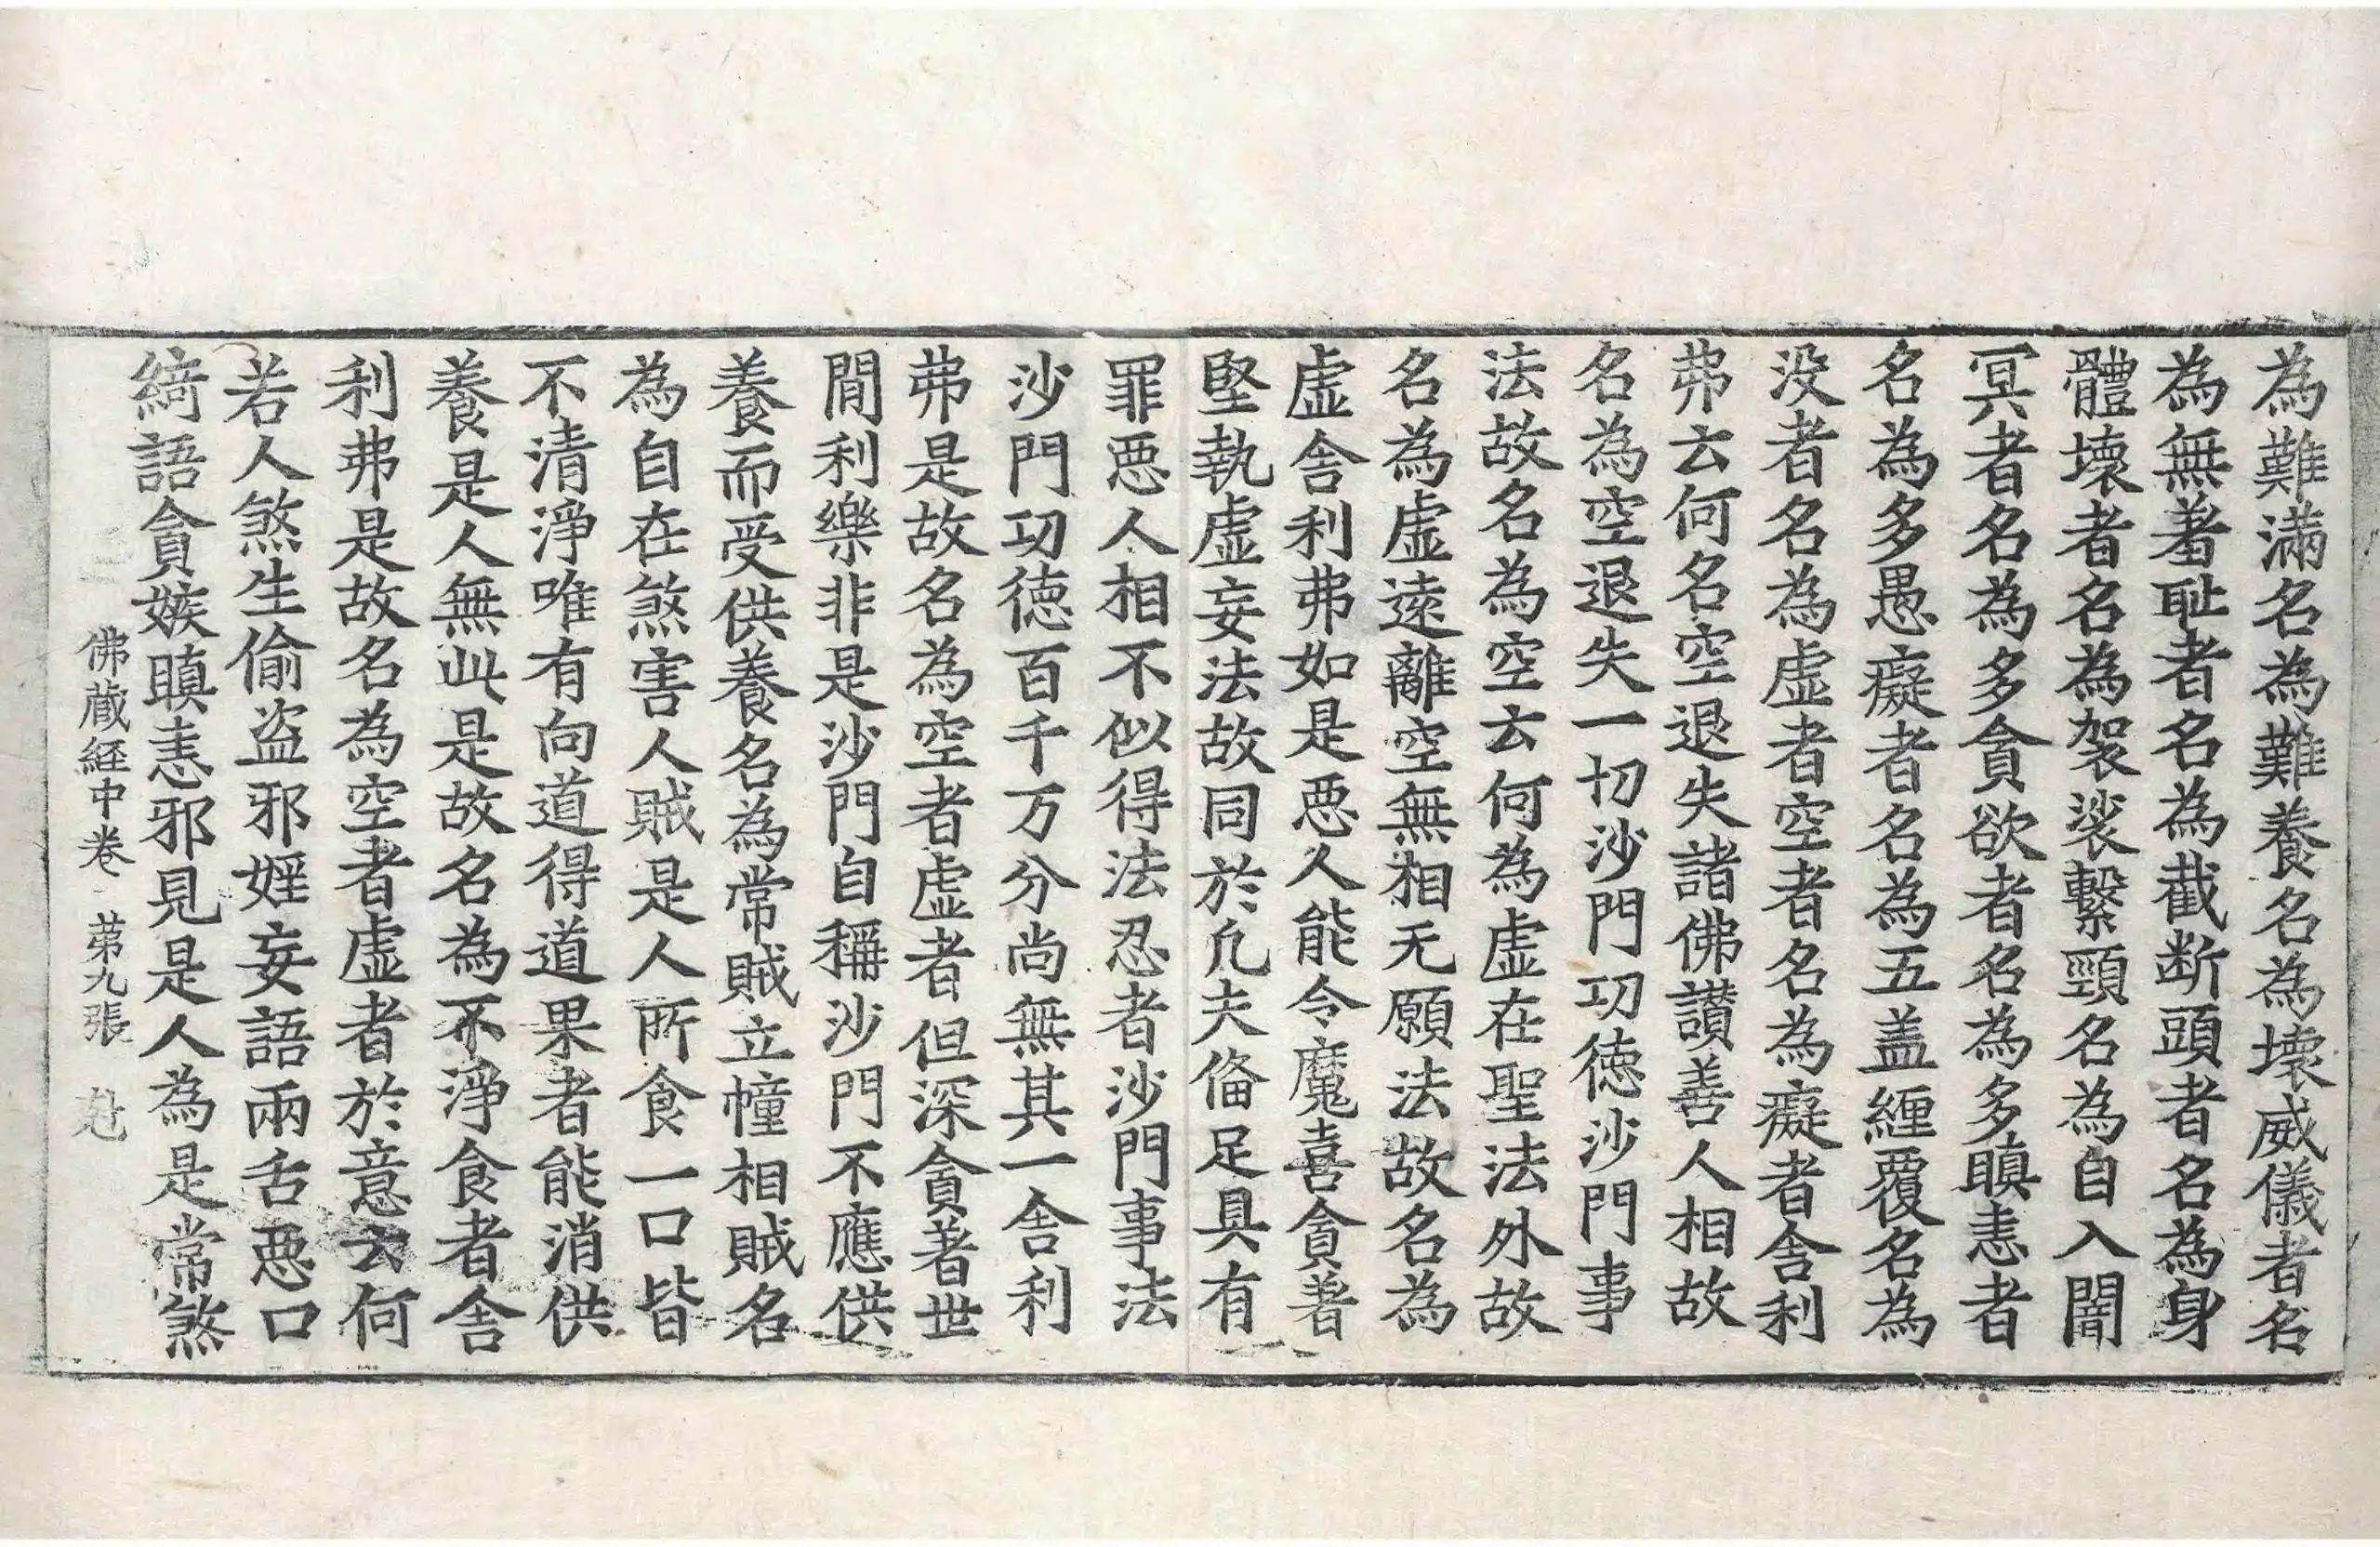 為難滿名為難養名為壞威儀者名
為無羞耻者名為截断頭者名為身
體壞者名為袈裟繫頸名為自入闇
冥者名為多貪欲者名為多瞋恚者
名為多愚癡者名為五盖纏覆名為
没者名為虛者空者名為癡者舎利
弗云何名空退失諸佛讃善人相故
名為空退失一切沙門功徳沙門事
法故名為空云何為虛在聖法外故
名為虛遠離空無相无願法故名為
虛舎利弗如是悪人能令魔喜貪著
堅執虛妄法故同於凡夫俻足具有
罪悪人相不似得法忍者沙門事法
沙門功徳百千万分尚無其一舎利
弗是故名為空者虛者但深貪著世
間利樂非是沙門自稱沙門不應供
養而受供養名為常賊立幢相賊名
為自在煞害人賊是人所食一口皆
不清淨唯有向道得道果者能消供
養是人無此是故名為不淨食者舎
利弗是故名為空者虛者於意云何
若人煞生偷盗邪婬妄語兩舌悪口
綺語貪嫉瞋恚邪見是人為是常煞
佛蔵経中卷 苐九張